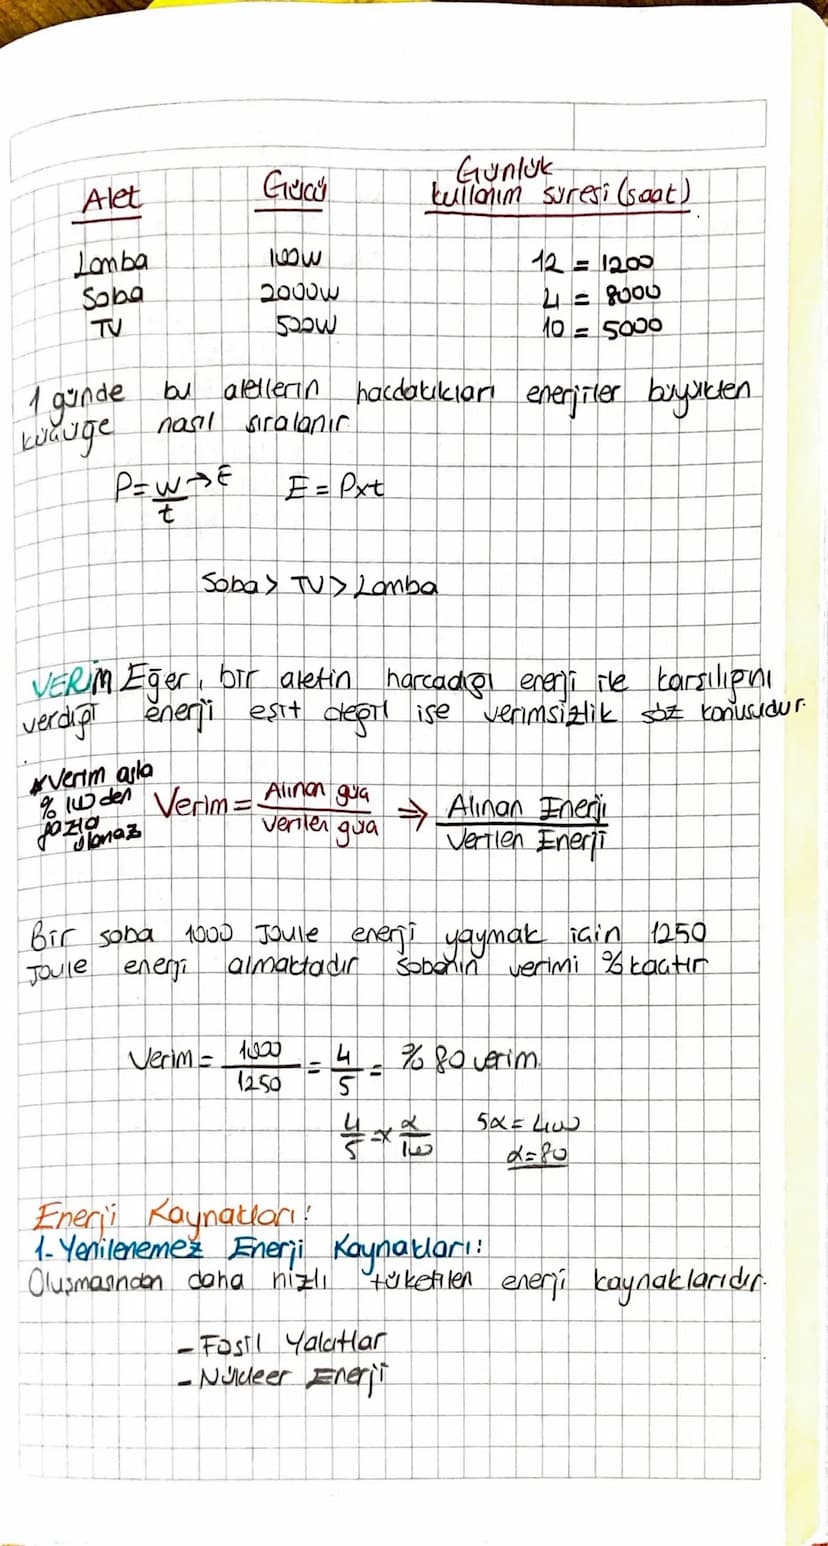 Alet Gücü Günlük kullanım süresi (saat)
Lamba 100W 12 = 1200
Soba 2000W 4 = 8000
TV 500W 10 = 5000
1 günde bu aletlerin hacdatıkları enerjiler büyükten
küçüğe nasıl sıralanır
P=W→E/t E = Pxt
Soba > TV > Lamba
VERİM Eğer, bir aletin harcadığı enerji ile karşılığını
verdiği enerji eşit değil ise verimsizlik söz konusudur.
*Verim asla
% 100 den
fazla
olamaz
Verim = Alınan güç/Verilen güç ⇒ Alınan Enerji/Verilen Enerji
Bir soba 1000 Joule enerji yaymak için 1250
Joule enerji almaktadır sobanın verimi % kaçtır
Verim = 1000/1250 = 4/5 = % 80 verim.
4/5 x α/100 5α = 400
α=80
Enerji Kaynakları:
1-Yenilenemez Enerji Kaynakları:
Oluşmasından daha hızlı tüketilen enerji kaynaklarıdır.
- Fosil Yakıtlar
- Nükleer Enerji